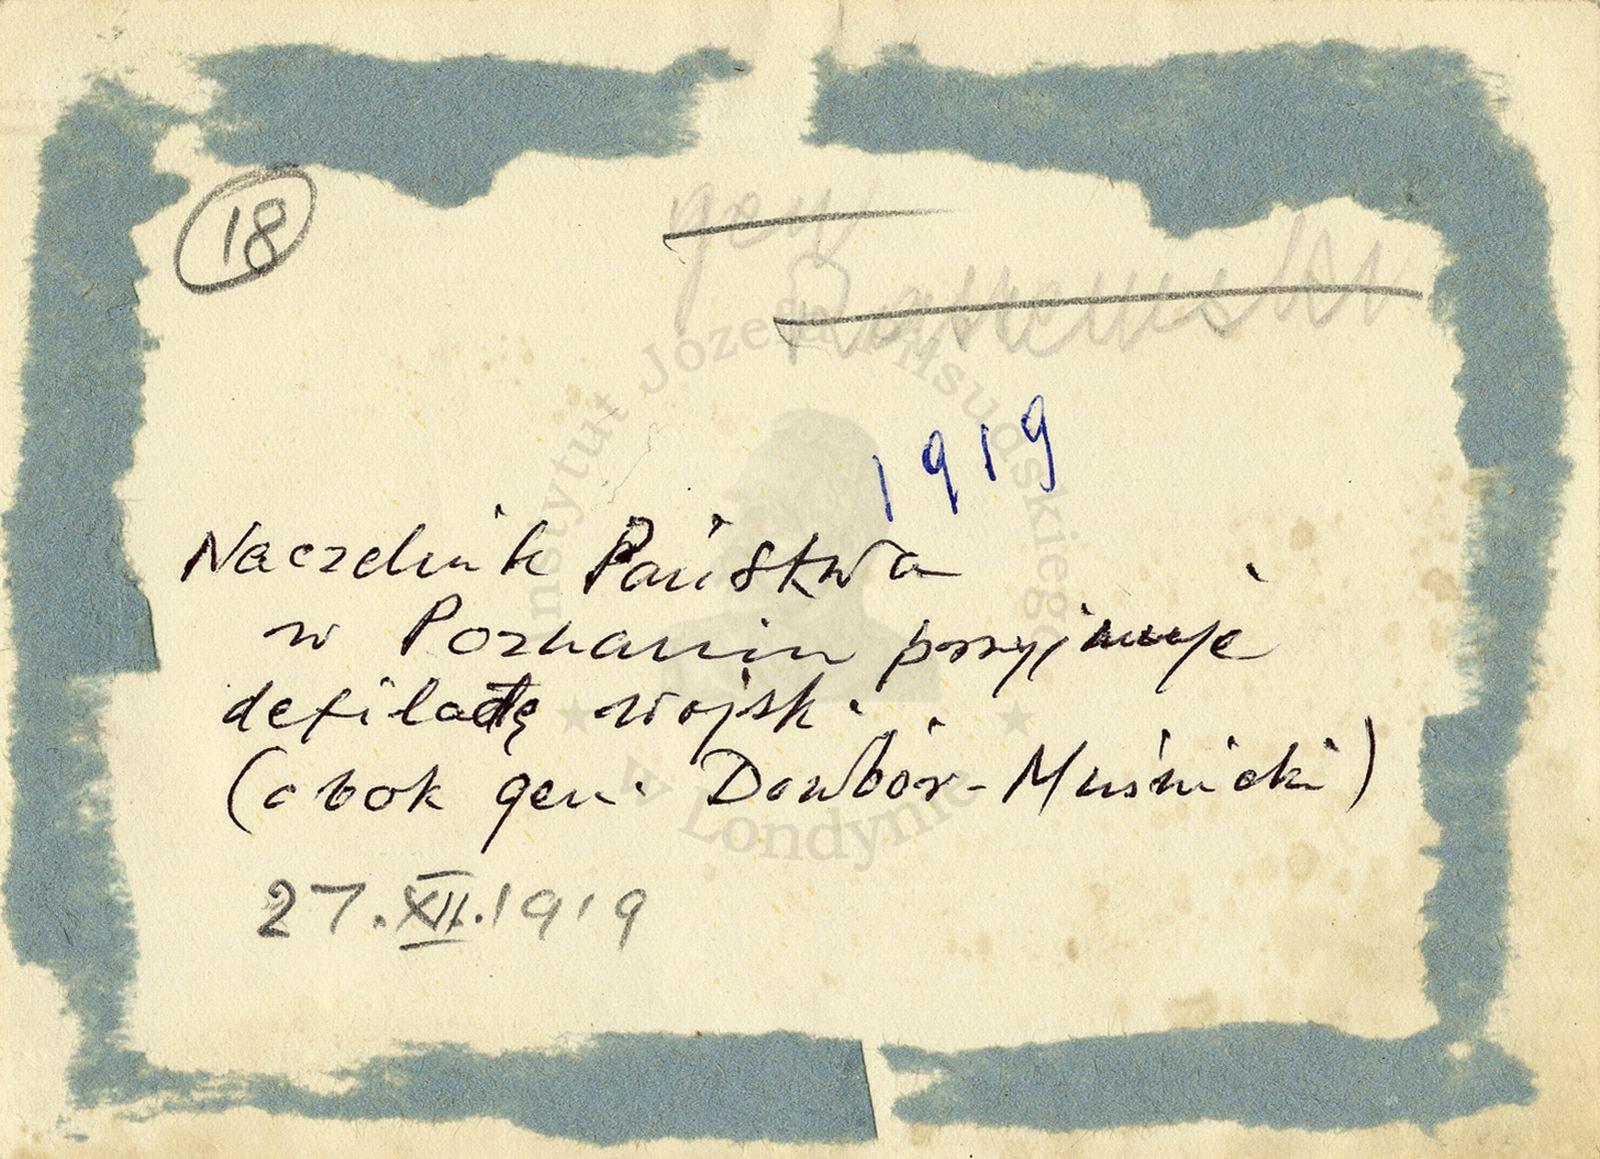 18
gen
1919
Naczelnik Państwa
w Poznaniu przyjmuje
defiladę wojsk.
(obok gen. Dowbór-Muśnicki)
27.XII.1919
Instytut Józefa Piłsudskiego
w Londynie